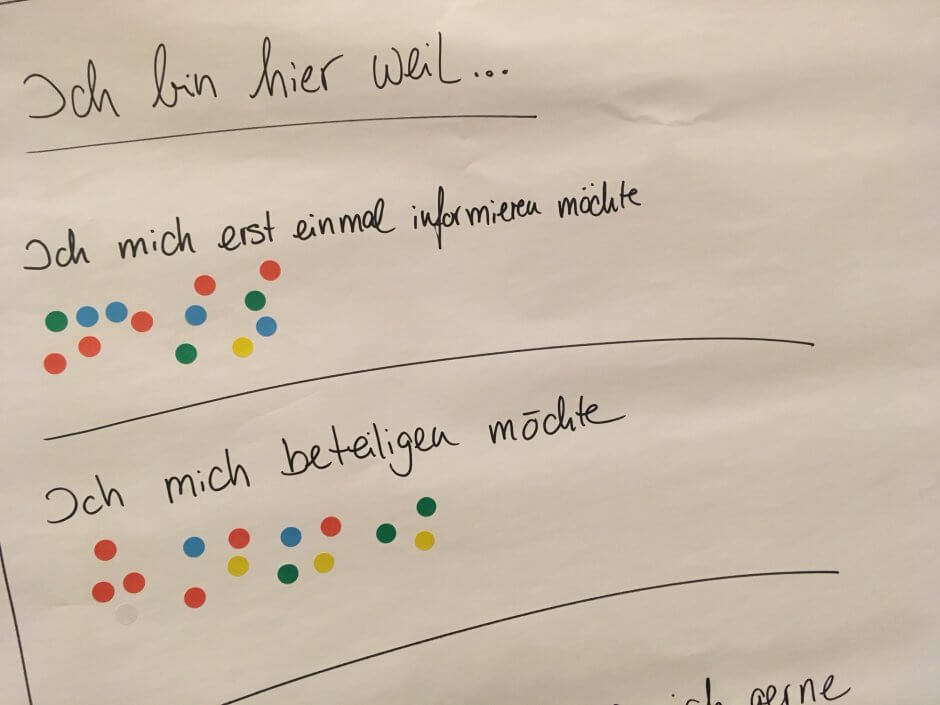 Ich bin hier weil...
Ich mich erst einmal informieren möchte
Ich mich beteiligen möchte
ich gerne